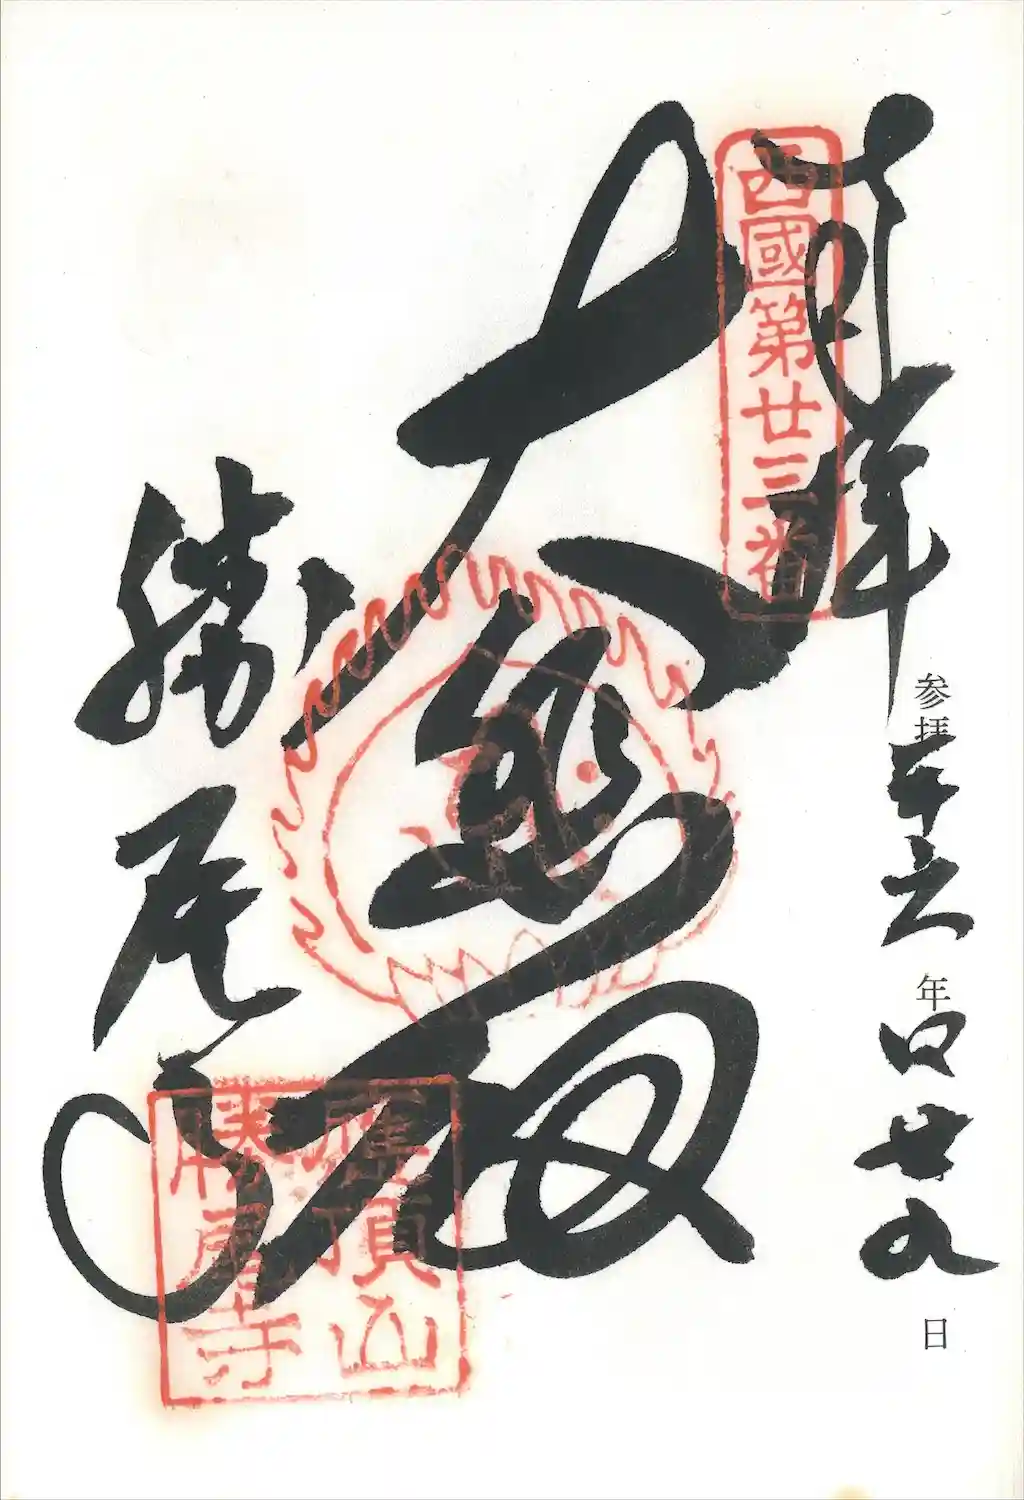 奉拝
西國第廿三番
参拝平六年四廿九日
大悲殿
勝尾寺
應頂山
勝尾寺